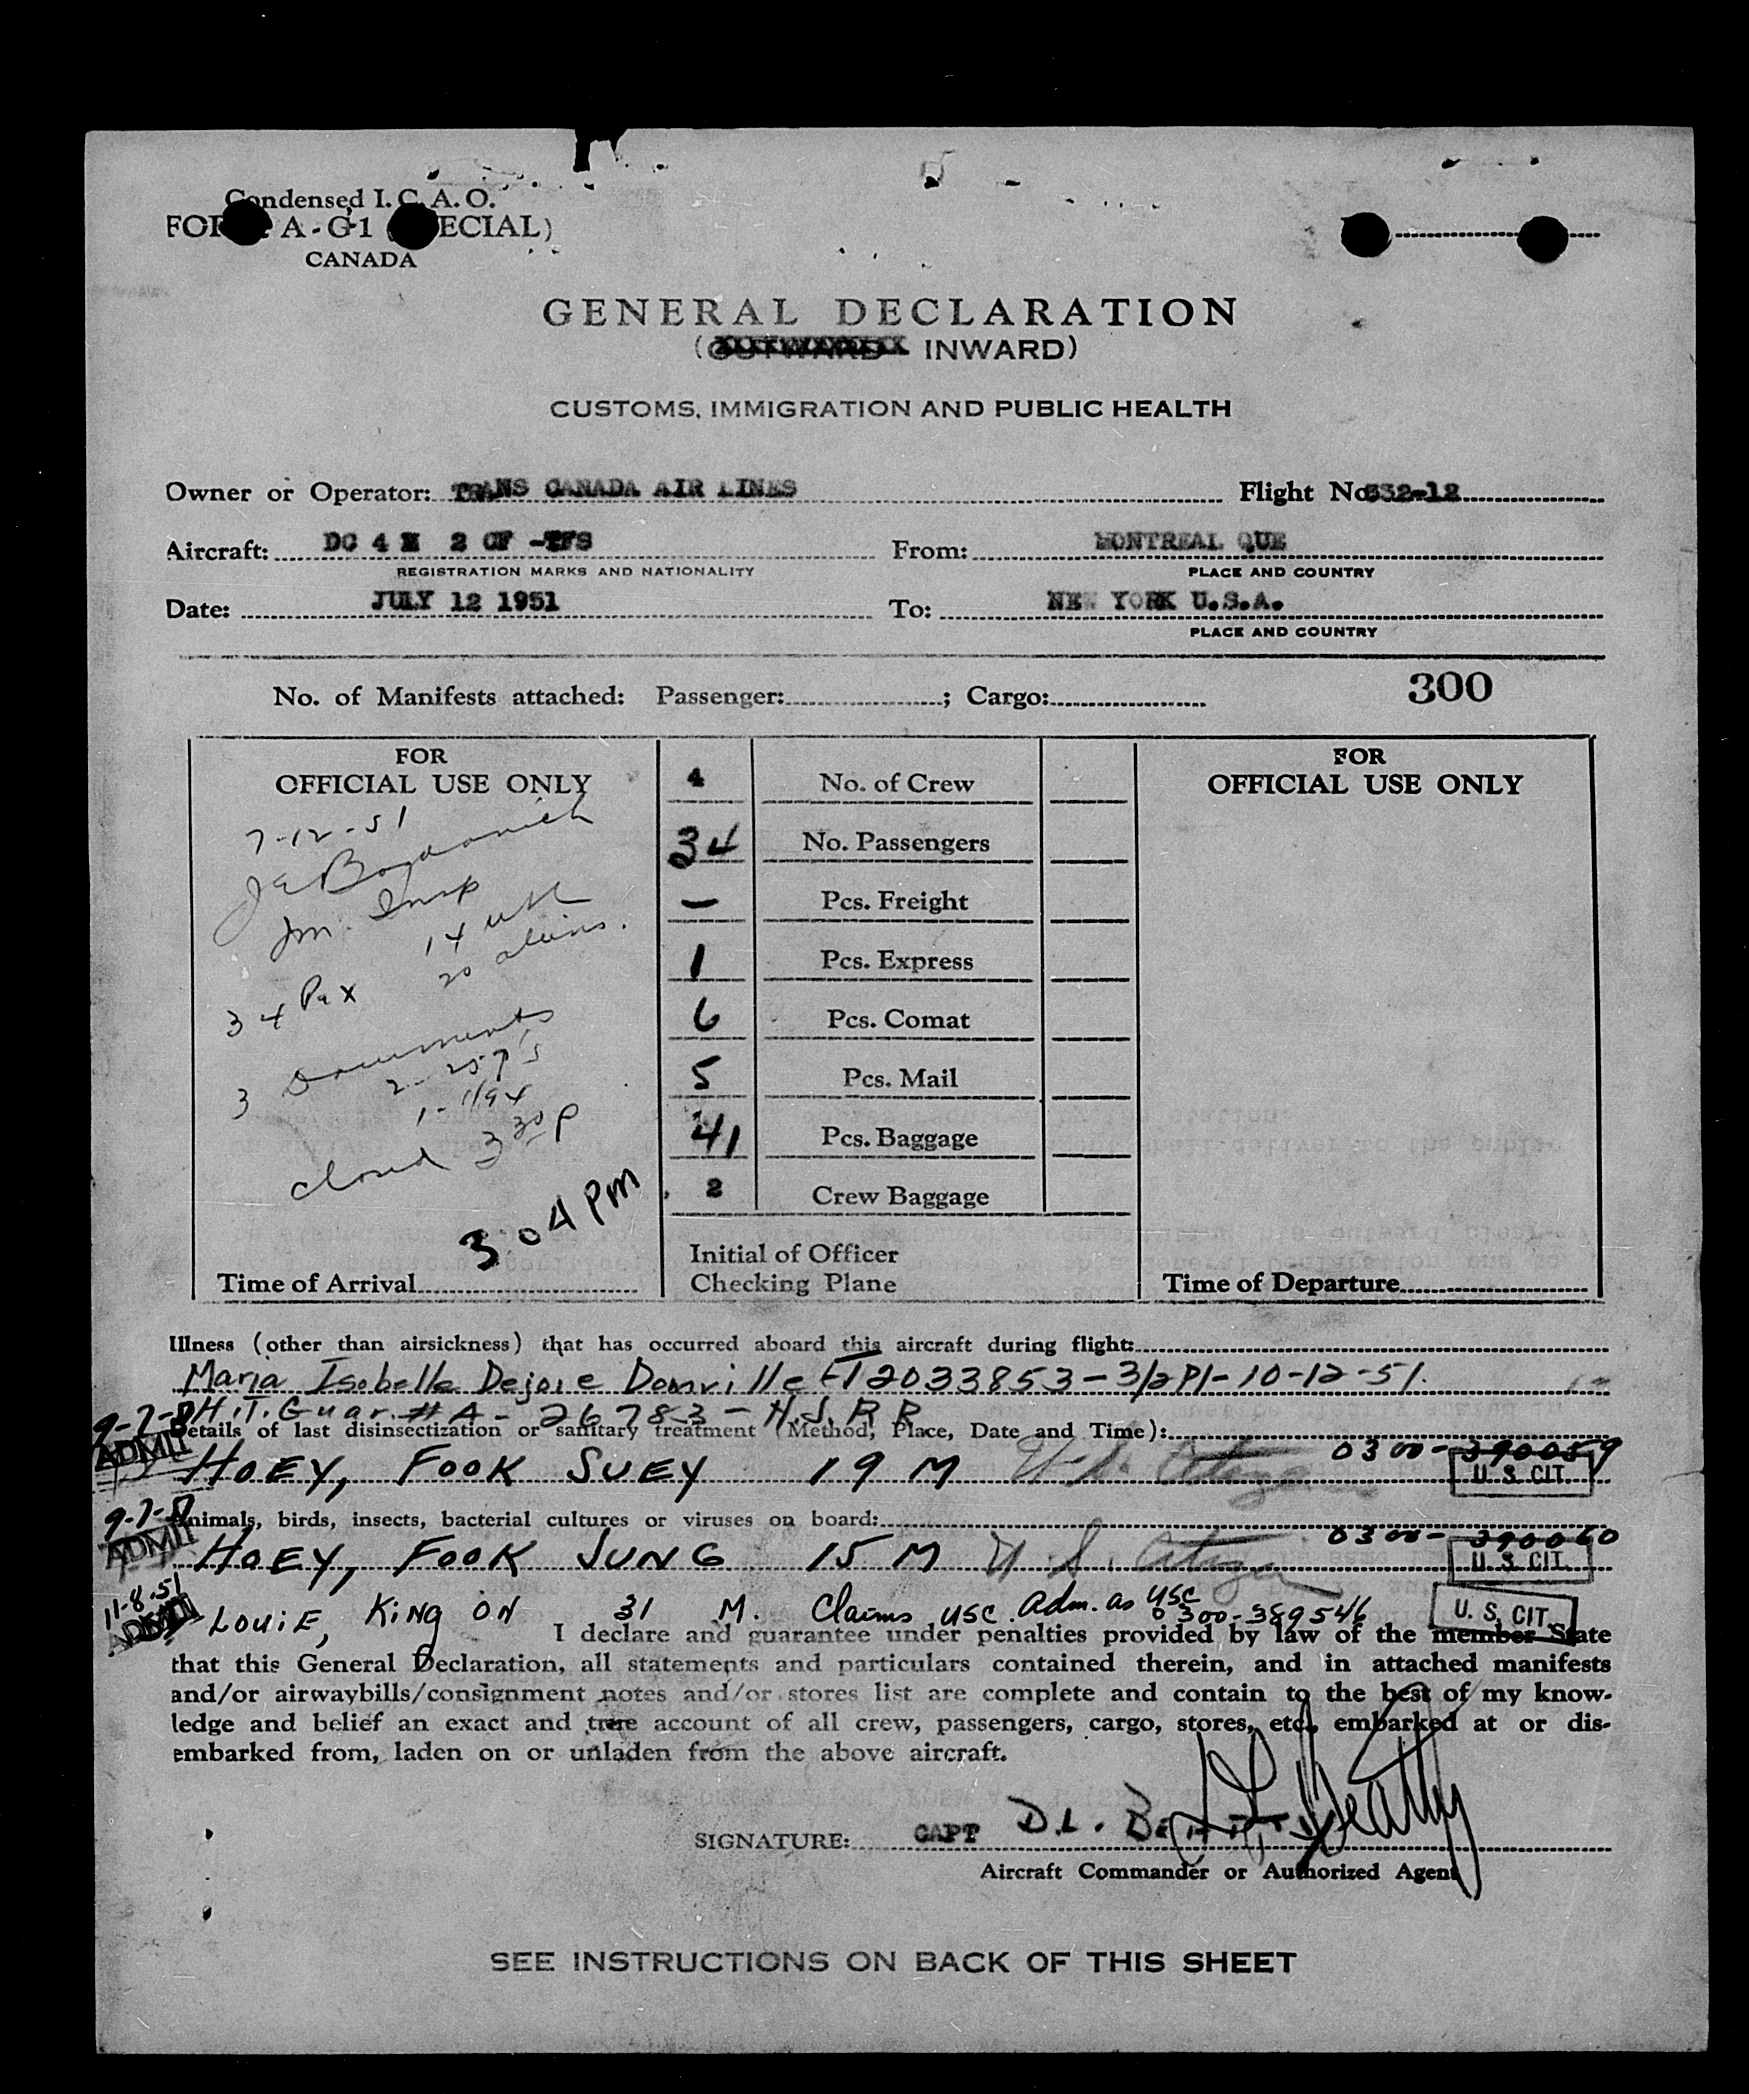 Condensed I.C.A.O.
A-G1
CANADA
GENERAL DECLARATION
(OUTWARD INWARD)
CUSTOMS, IMMIGRATION AND PUBLIC HEALTH
Owner or Operator: TRANS CANADA AIR LINES Flight No. 532-12
Aircraft: DC 4 M 2 CF -TFS From: MONTREAL QUE
REGISTRATION MARKS AND NATIONALITY PLACE AND COUNTRY
Date: JULY 12 1951 To: NEW YORK U.S.A.
PLACE AND COUNTRY
No. of Manifests attached: Passenger: ; Cargo: 300
FOR
OFFICIAL USE ONLY
7-12-51
Im. Insp
14 USC
20 aliens.
34 Pax
3 Documents
2-257's
1-1194
closed 3 30 P
3 04 PM
Time of Arrival
4 No. of Crew
34 No. Passengers
— Pcs. Freight
1 Pcs. Express
6 Pcs. Comat
5 Pcs. Mail
41 Pcs. Baggage
2 Crew Baggage
Initial of Officer
Checking Plane
FOR
OFFICIAL USE ONLY
Time of Departure
Illness (other than airsickness) that has occurred aboard this aircraft during flight:
Maria Isobelle Dejoie T2033853-3/2 P1-10-12-51.
H.T. Guar. #A-26783-N.J. R R
Details of last disinsectization or sanitary treatment (Method, Place, Date and Time):
9-7-51 ADMIT HOEY, FOOK SUEY 19 M U.S. Citizen 0300-390059 U. S. CIT.
Animals, birds, insects, bacterial cultures or viruses on board:
9-7-51 ADMIT HOEY, FOOK JUNG 15 M U.S. Citizen 0300-390060 U. S. CIT.
11-8-51 LOUIE, KING ON 31 M. Claims USC. Adm. as USC 0300-389546 U. S. CIT.
I declare and guarantee under penalties provided by law of the member State
that this General Declaration, all statements and particulars contained therein, and in attached manifests
and/or airwaybills/consignment notes and/or stores list are complete and contain to the best of my know-
ledge and belief an exact and true account of all crew, passengers, cargo, stores, etc., embarked at or dis-
embarked from, laden on or unladen from the above aircraft.
SIGNATURE: CAPT D.L.
Aircraft Commander or Authorized Agent
SEE INSTRUCTIONS ON BACK OF THIS SHEET